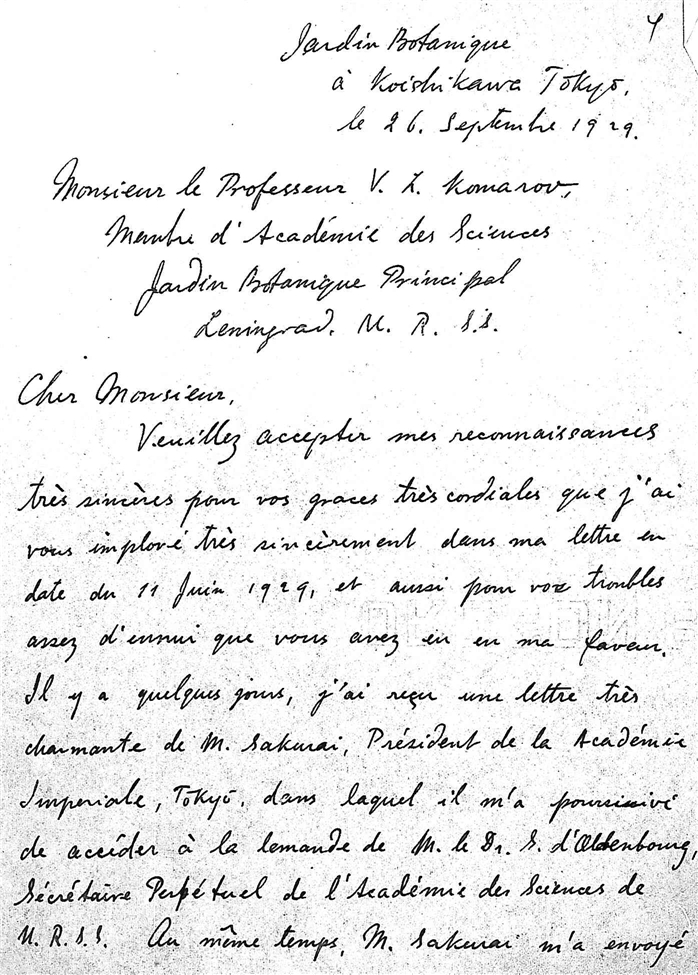 4
Jardin Botanique
à Koishikawa Tokyō,
le 26. Septembre 1929.
Monsieur le Professeur V. L. Komarov,
Membre d'Académie des Sciences
Jardin Botanique Principal
Leningrad. U. R. S.S.
Cher Monsieur,
Veuillez accepter mes reconnaissances
très sincères pour vos graces très cordiales que j'ai
vous imploré très sincèrement dans ma lettre en
date du 11 Juin 1929, et aussi pour vos troubles
assez d'ennui que vous avez eu en ma faveur.
Il y a quelques jours, j'ai reçu une lettre très
charmante de M. Sakurai, Président de la Académie
Imperiale, Tokyō, dans laquel il m'a poursuivé
de accéder à la demande de M. le Dr. S. d'Oldenbourg,
Sécrétaire Perpétuel de l'Académie des Sciences de
U. R. S. S. Au même temps, M. Sakurai m'a envoyé